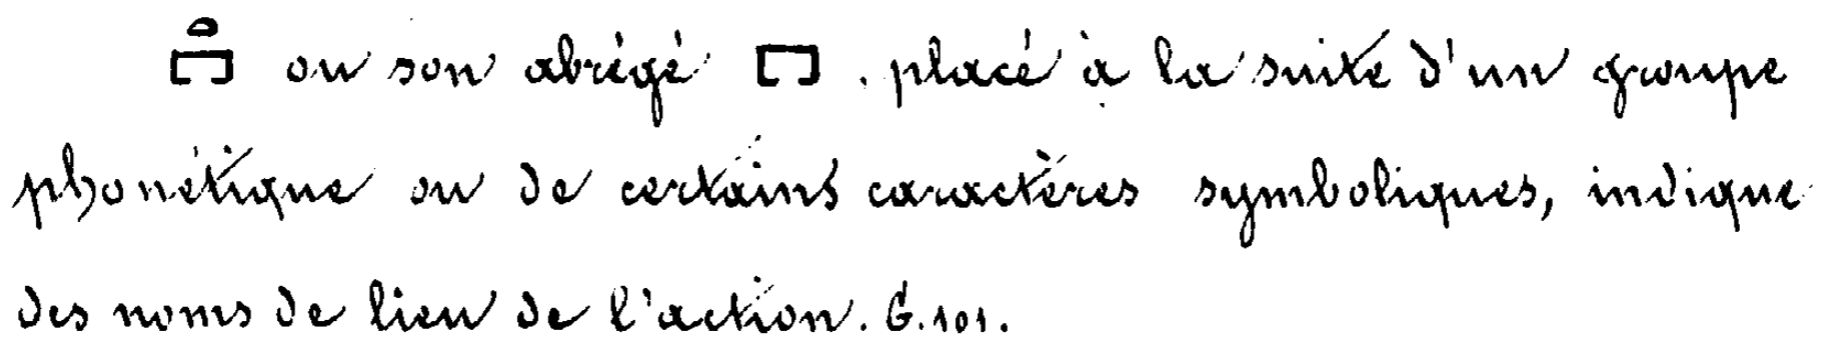 𓏏𓉐 ou son abrégé 𓉐. placé à la suite d'un groupe
phonétique ou de certains caractères symboliques, indique
des noms de lieu de l'action. G. 101.